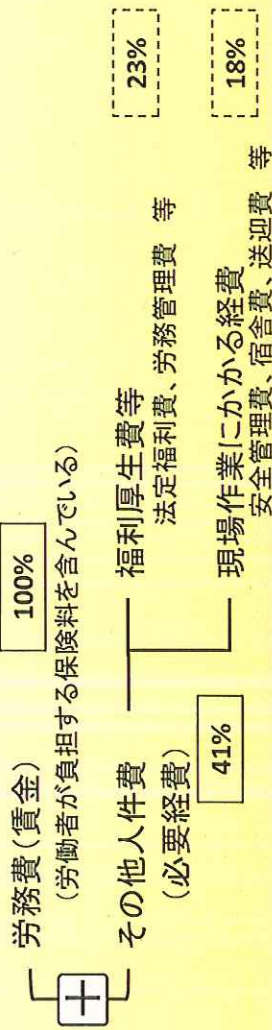 労務費（賃金） 100%
（労働者が負担する保険料を含んでいる）
＋
その他人件費
（必要経費）
41%
福利厚生費等 23%
法定福利費、労務管理費 等
現場作業にかかる経費 18%
安全管理費、宿舎費、送迎費 等